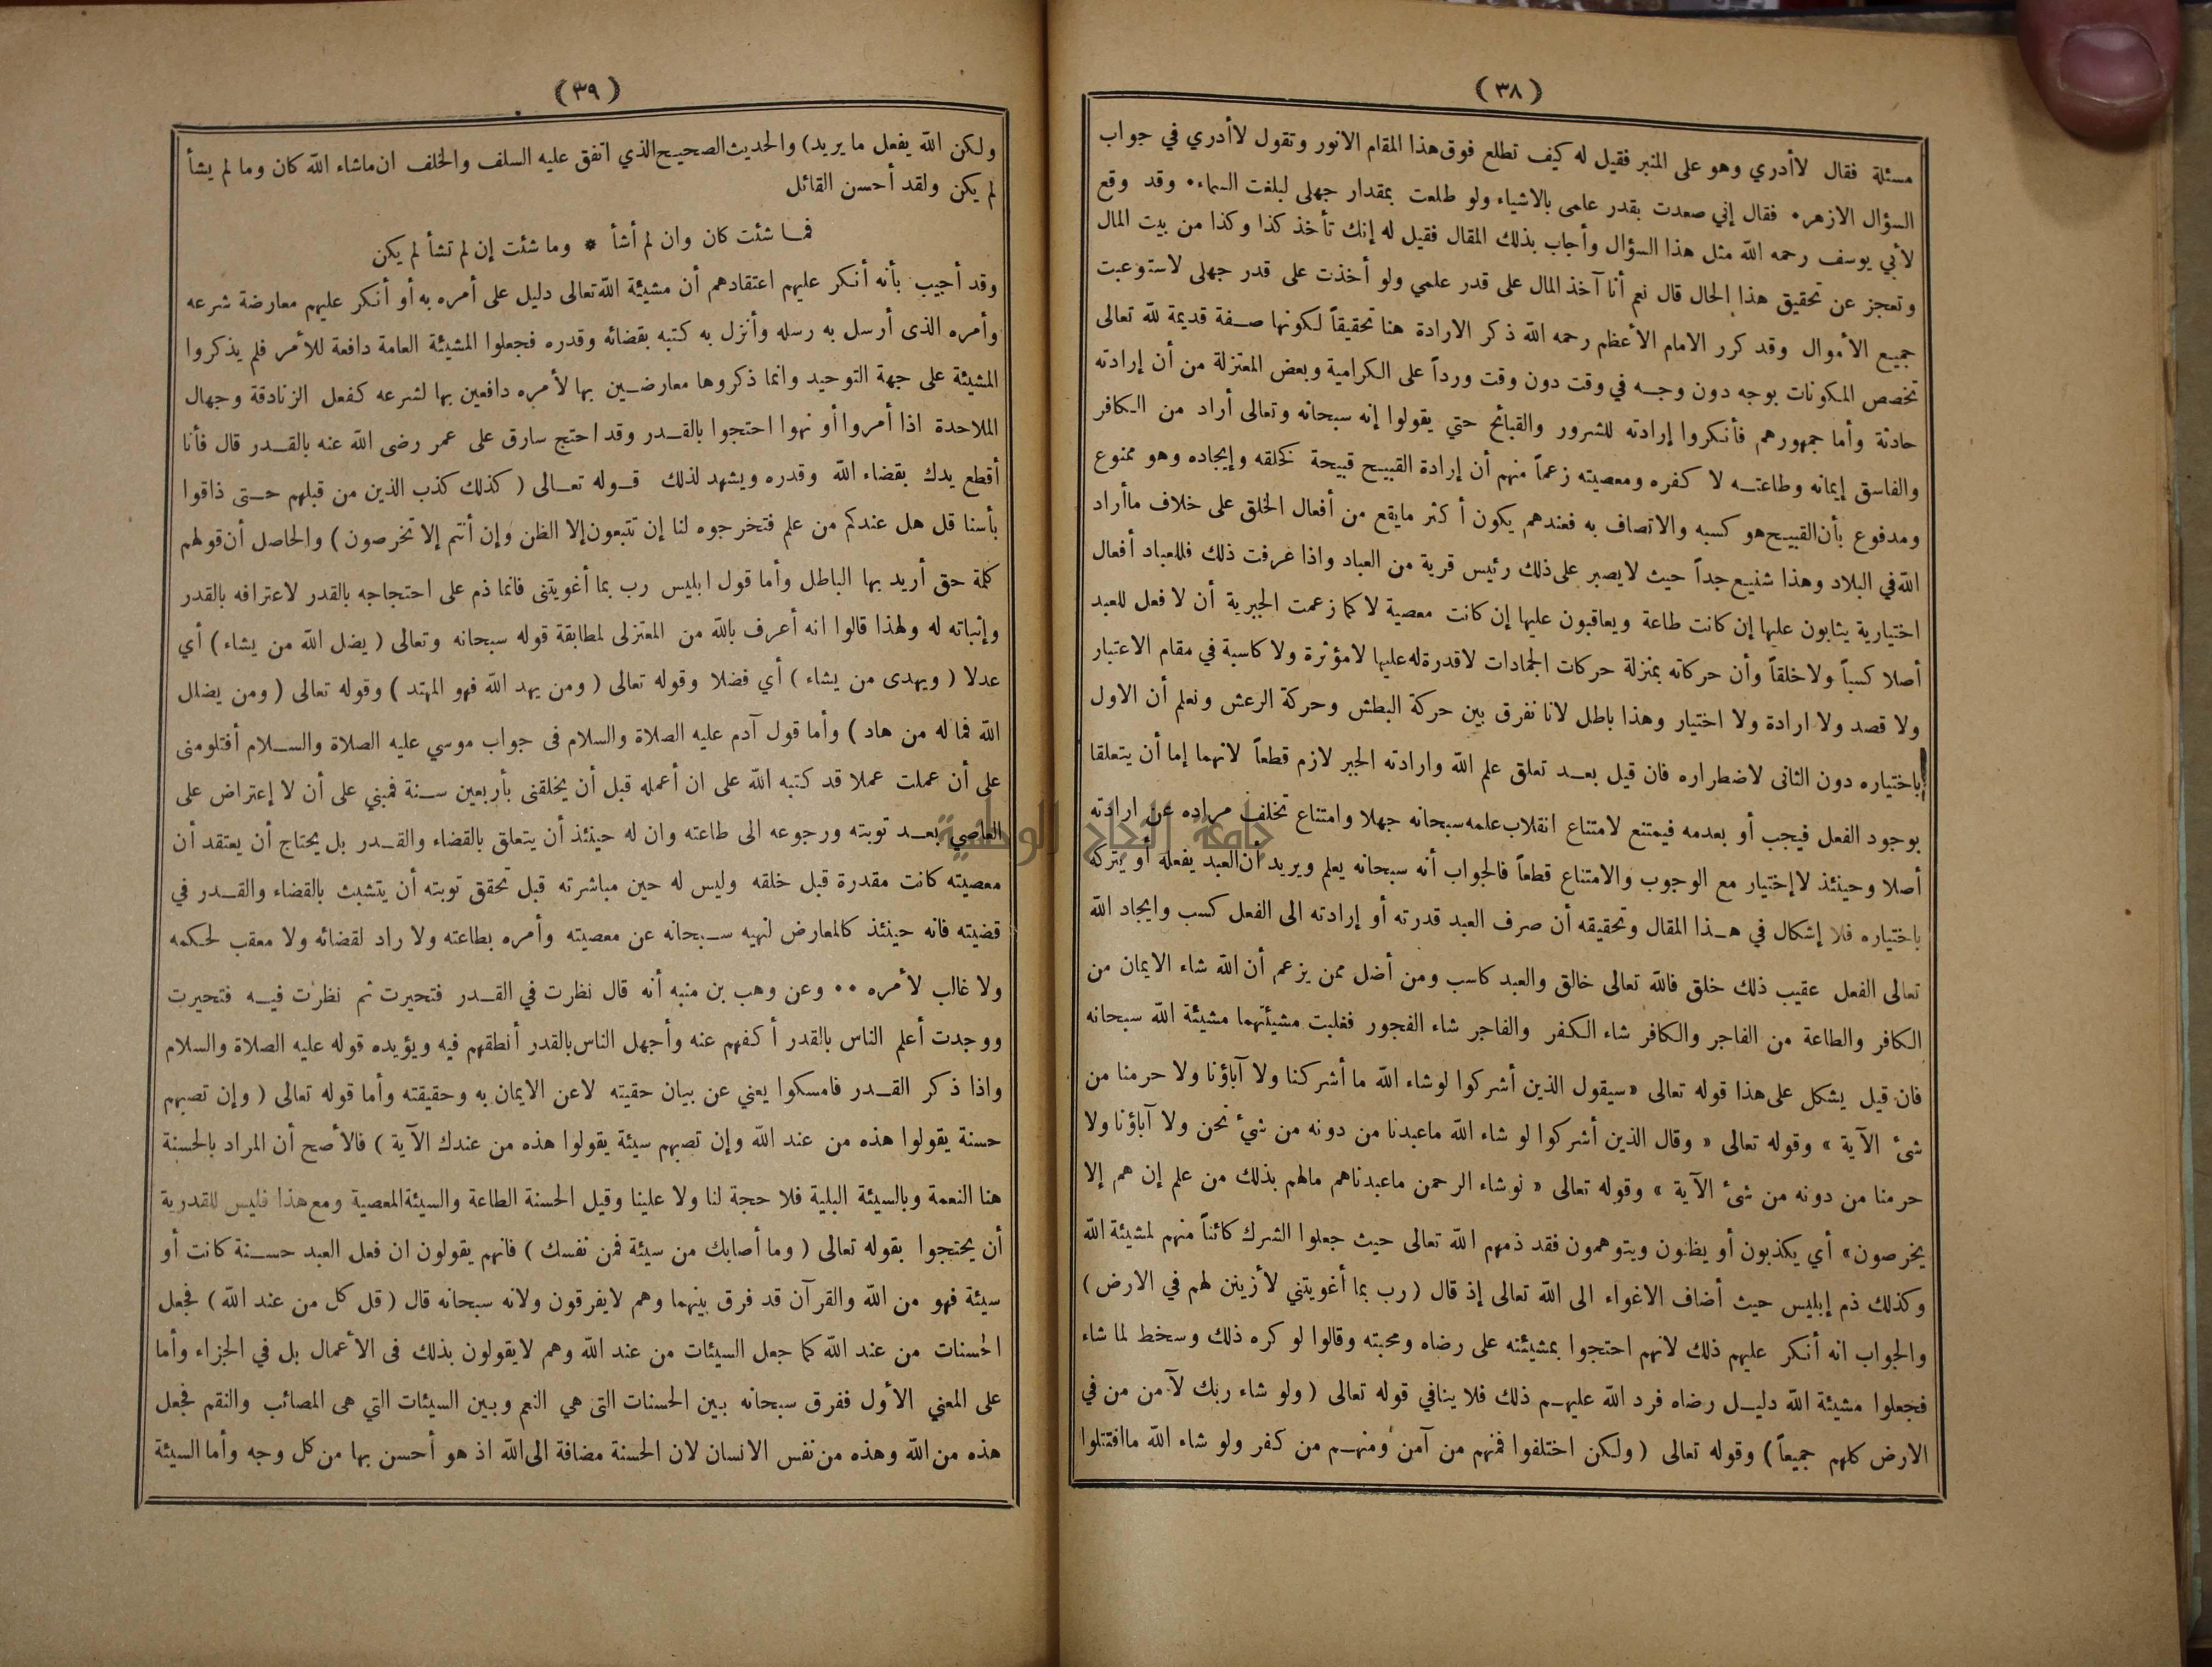 (٣٨)
مسئلة فقال لاأدري وهو على المنبر فقيل له كيف تطلع فوق هذا المقام الانور وتقول لاأدري في جواب
السؤال الازهر٠ فقال إني صعدت بقدر علمى بالاشياء ولو طلعت بمقدار جهلى لبلغت السماء٠ وقد وقع
لأبي يوسف رحمه الله مثل هذا السؤال وأجاب بذلك المقال فقيل له إنك تأخذ كذا وكذا من بيت المال
وتعجز عن تحقيق هذا الحال قال نعم أنا آخذ المال على قدر علمي ولو أخذت على قدر جهلى لاستوعبت
جميع الأموال وقد كرر الامام الأعظم رحمه الله ذكر الارادة هنا تحقيقاً لكونها صفة قديمة لله تعالى
تخصص المكونات بوجه دون وجه في وقت دون وقت ورداً على الكرامية وبعض المعتزلة من أن إرادته
حادثة وأما جمهورهم فأنكروا إرادته للشرور والقبائح حتي يقولوا إنه سبحانه وتعالى أراد من الكافر
والفاسق إيمانه وطاعته لا كفره ومعصيته زعماً منهم أن إرادة القبيح قبيحة كخلقه وإيجاده وهو ممنوع
ومدفوع بأن القبيح هو كسبه والاتصاف به فعندهم يكون أكثر مايقع من أفعال الخلق على خلاف ماأراد
الله في البلاد وهذا شنيع جداً حيث لايصبر على ذلك رئيس قرية من العباد واذا عرفت ذلك فللعباد أفعال
اختيارية يثابون عليها إن كانت طاعة ويعاقبون عليها إن كانت معصية لا كما زعمت الجبرية أن لا فعل للعبد
أصلا كسباً ولا خلقاً وأن حركاته بمنزلة حركات الجمادات لاقدرة له عليها لامؤثرة ولا كاسبة في مقام الاعتبار
ولا قصد ولا ارادة ولا اختيار وهذا باطل لانا نفرق بين حركة البطش وحركة الرعش ونعلم أن الاول
باختياره دون الثانى لاضطراره فان قيل بعد تعلق علم الله وارادته الجبر لازم قطعاً لانهما إما أن يتعلقا
بوجود الفعل فيجب أو بعدمه فيمتنع لامتناع انقلاب علمه سبحانه جهلا وامتناع تخلف مراده عن ارادته
أصلا وحينئذ لاإختيار مع الوجوب والامتناع قطعاً فالجواب أنه سبحانه يعلم ويريد أن العبد يفعله أو يتركه
باختياره فلا إشكال في هذا المقال وتحقيقه أن صرف العبد قدرته أو إرادته الى الفعل كسب وايجاد الله
تعالى الفعل عقيب ذلك خلق فالله تعالى خالق والعبد كاسب ومن أضل ممن يزعم أن الله شاء الايمان من
الكافر والطاعة من الفاجر والكافر شاء الكفر والفاجر شاء الفجور فغلبت مشيئتهما مشيئة الله سبحانه
فان قيل يشكل على هذا قوله تعالى «سيقول الذين أشركوا لوشاء الله ما أشركنا ولا آباؤنا ولا حرمنا من
شئ الآية» وقوله تعالى «وقال الذين أشركوا لو شاء الله ماعبدنا من دونه من شيء نحن ولا آباؤنا ولا
حرمنا من دونه من شئ الآية» وقوله تعالى «لوشاء الرحمن ماعبدناهم مالهم بذلك من علم إن هم إلا
يخرصون» أي يكذبون أو يظنون ويتوهمون فقد ذمهم الله تعالى حيث جعلوا الشرك كائناً منهم لمشيئة الله
وكذلك ذم إبليس حيث أضاف الاغواء الى الله تعالى إذ قال (رب بما أغويتني لأزينن لهم في الارض)
والجواب انه أنكر عليهم ذلك لانهم احتجوا بمشيئته على رضاه ومحبته وقالوا لو كره ذلك وسخط لما شاء
فجعلوا مشيئة الله دليل رضاه فرد الله عليهم ذلك فلا ينافي قوله تعالى (ولو شاء ربك لآمن من في
الارض كلهم جميعاً) وقوله تعالى (ولكن اختلفوا فمنهم من آمن ومنهم من كفر ولو شاء الله ماافتتلوا
(٣٩)
ولكن الله يفعل مايريد) والحديث الصحيح الذي اتفق عليه السلف والخلف ان ماشاء الله كان وما لم يشأ
لم يكن ولقد أحسن القائل
فما شئت كان وان لم أشأ * وما شئت إن لم تشأ لم يكن
وقد أجيب بأنه أنكر عليهم اعتقادهم أن مشيئة الله تعالى دليل على أمره به أو أنكر عليهم معارضة شرعه
وأمره الذى أرسل به رسله وأنزل به كتبه بقضائه وقدره فجعلوا المشيئة العامة دافعة للأمر فلم يذكروا
المشيئة على جهة التوحيد وانما ذكروها معارضين بها لأمره دافعين بها لشرعه كفعل الزنادقة وجهال
الملاحدة اذا أمروا أو نهوا احتجوا بالقدر وقد احتج سارق على عمر رضى الله عنه بالقدر قال فأنا
أقطع يدك بقضاء الله وقدره ويشهد لذلك قوله تعالى (كذلك كذب الذين من قبلهم حتى ذاقوا
بأسنا قل هل عندكم من علم فتخرجوه لنا إن تتبعون إلا الظن وإن أنتم إلا تخرصون) والحاصل أن قولهم
كلمة حق أريد بها الباطل وأما قول ابليس رب بما أغويتنى فانما ذم على احتجاجه بالقدر لاعترافه بالقدر
وإثباته له ولهذا قالوا انه أعرف بالله من المعتزلى لمطابقة قوله سبحانه وتعالى (يضل الله من يشاء) أي
عدلا (ويهدى من يشاء) أي فضلا وقوله تعالى (ومن يهد الله فهو المهتد) وقوله تعالى (ومن يضلل
الله فما له من هاد) وأما قول آدم عليه الصلاة والسلام فى جواب موسي عليه الصلاة والسلام أفتلومنى
على أن عملت عملا قد كتبه الله على ان أعمله قبل أن يخلقنى بأربعين سنة فمبني على أن لا إعتراض على
العاصي بعد توبته ورجوعه الى طاعته وان له حينئذ أن يتعلق بالقضاء والقدر بل يحتاج أن يعتقد أن
معصيته كانت مقدرة قبل خلقه وليس له حين مباشرته قبل تحقق توبته أن يتشبث بالقضاء والقدر في
قضيته فانه حينئذ كالمعارض لنهيه سبحانه عن معصيته وأمره بطاعته ولا راد لقضائه ولا معقب لحكمه
ولا غالب لأمره ٠٠ وعن وهب بن منبه أنه قال نظرت في القدر فتحيرت ثم نظرت فيه فتحيرت
ووجدت أعلم الناس بالقدر أكفهم عنه وأجهل الناس بالقدر أنطقهم فيه ويؤيده قوله عليه الصلاة والسلام
واذا ذكر القدر فامسكوا يعني عن بيان حقيته لاعن الايمان به وحقيقته وأما قوله تعالى (وإن تصبهم
حسنة يقولوا هذه من عند الله وإن تصبهم سيئة يقولوا هذه من عندك الآية) فالأصح أن المراد بالحسنة
هنا النعمة وبالسيئة البلية فلا حجة لنا ولا علينا وقيل الحسنة الطاعة والسيئة المعصية ومع هذا فليس للقدرية
أن يحتجوا بقوله تعالى (وما أصابك من سيئة فمن نفسك) فانهم يقولون ان فعل العبد حسنة كانت أو
سيئة فهو من الله والقرآن قد فرق بينهما وهم لايفرقون ولانه سبحانه قال (قل كل من عند الله) فجعل
الحسنات من عند الله كما جعل السيئات من عند الله وهم لايقولون بذلك فى الأعمال بل في الجزاء وأما
على المعني الأول ففرق سبحانه بين الحسنات التى هي النعم وبين السيئات التي هى المصائب والنقم فجعل
هذه من الله وهذه من نفس الانسان لان الحسنة مضافة الى الله اذ هو أحسن بها من كل وجه وأما السيئة
جامعة النجاح الوطنية